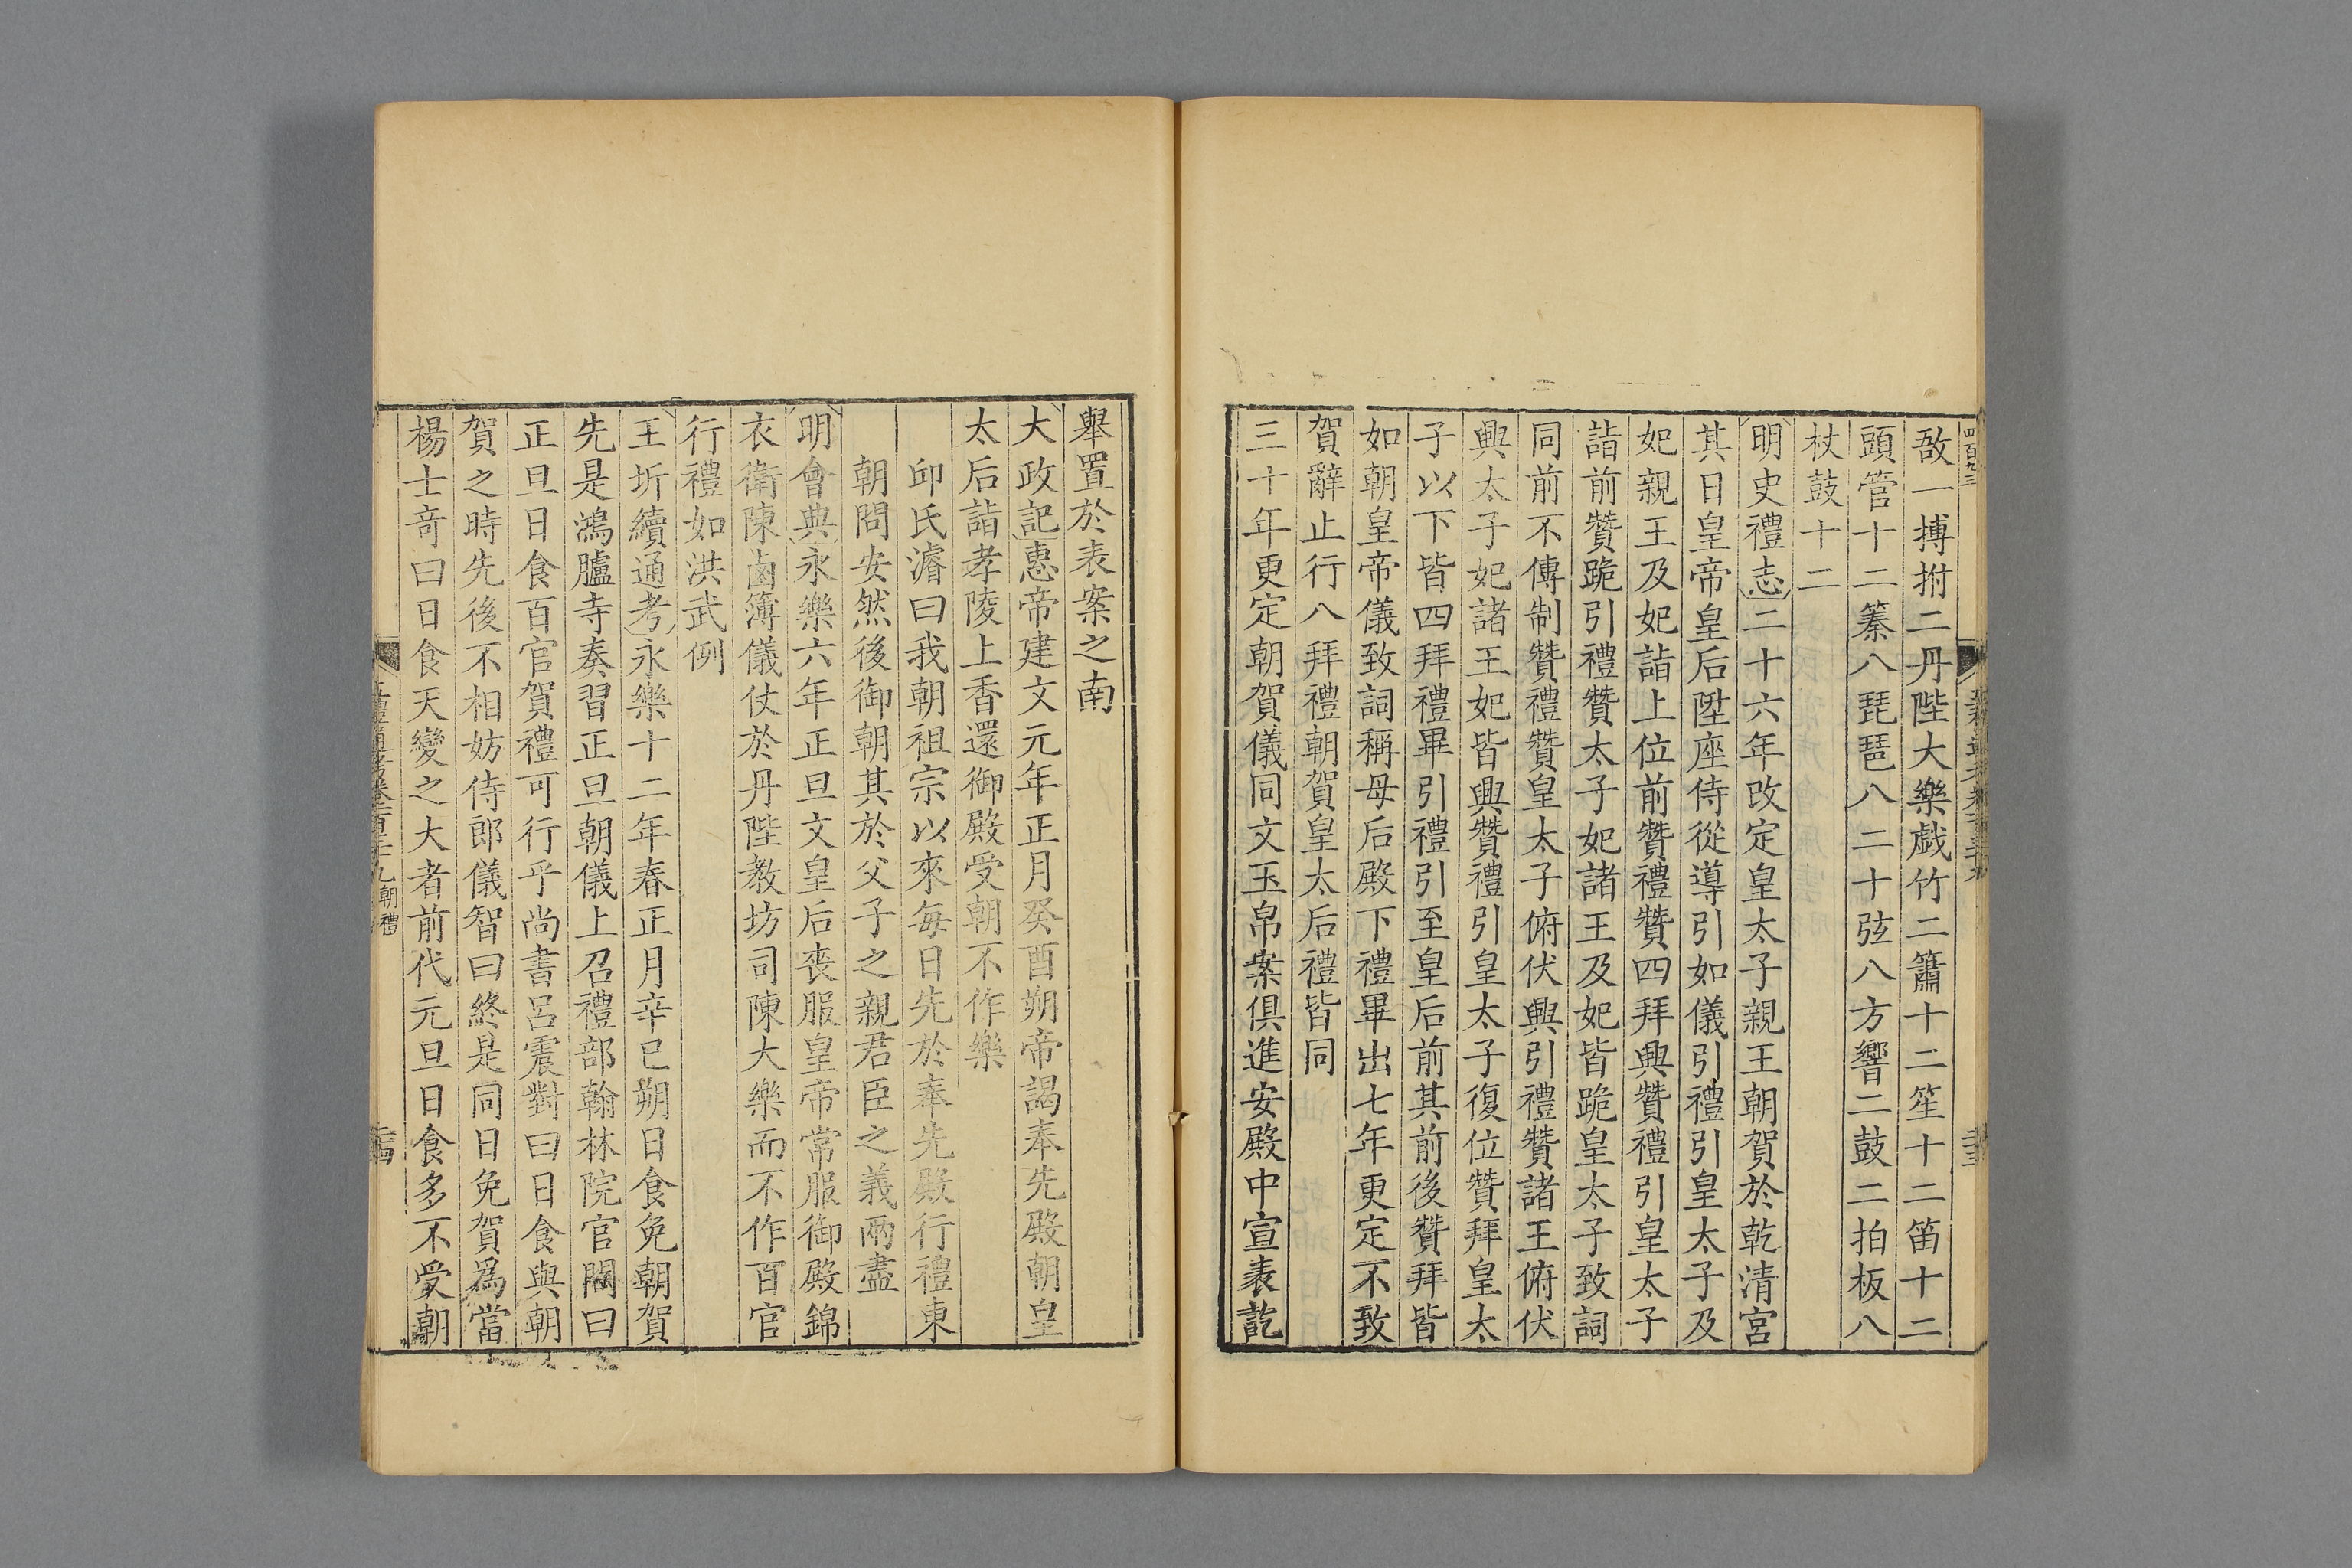 四百九三
敔一搏拊二丹陛大樂戲竹二簫十二笙十二笛十二
頭管十二𥱧八琵琶八二十弦八方響二鼓二拍板八
杖鼓十二
明史禮志二十六年改定皇太子親王朝賀於乾清宮
其日皇帝皇后陞座侍從導引如儀引禮引皇太子及
妃親王及妃詣上位前贊禮贊四拜興贊禮引皇太子
詣前贊跪引禮贊太子妃諸王及妃皆跪皇太子致詞
同前不傳制贊禮贊皇太子俯伏興引禮贊諸王俯伏
興太子妃諸王妃皆興贊禮引皇太子復位贊拜皇太
子以下皆四拜禮畢引禮引至皇后前其前後贊拜皆
如朝皇帝儀致詞稱母后殿下禮畢出七年更定不致
賀辭止行八拜禮朝賀皇太后禮皆同
三十年更定朝賀儀同文玉帛案俱進安殿中宣表訖
舉置於表案之南
大政記惠帝建文元年正月癸酉朔帝謁奉先殿朝皇
太后詣孝陵上香還御殿受朝不作樂
邱氏濬曰我朝祖宗以來每日先於奉先殿行禮東
朝問安然後御朝其於父子之親君臣之義兩盡
明會典永樂六年正旦文皇后喪服皇帝常服御殿錦
衣衛陳鹵簿儀仗於丹陛教坊司陳大樂而不作百官
行禮如洪武例
王圻續通考永樂十二年春正月辛巳朔日食免朝賀
先是鴻臚寺奏習正旦朝儀上召禮部翰林院官問曰
正旦日食百官賀禮可行乎尚書呂震對曰日食與朝
賀之時先後不相妨侍郎儀智曰終是同日免賀為當
楊士奇曰日食天變之大者前代元旦日食多不受朝
朝禮